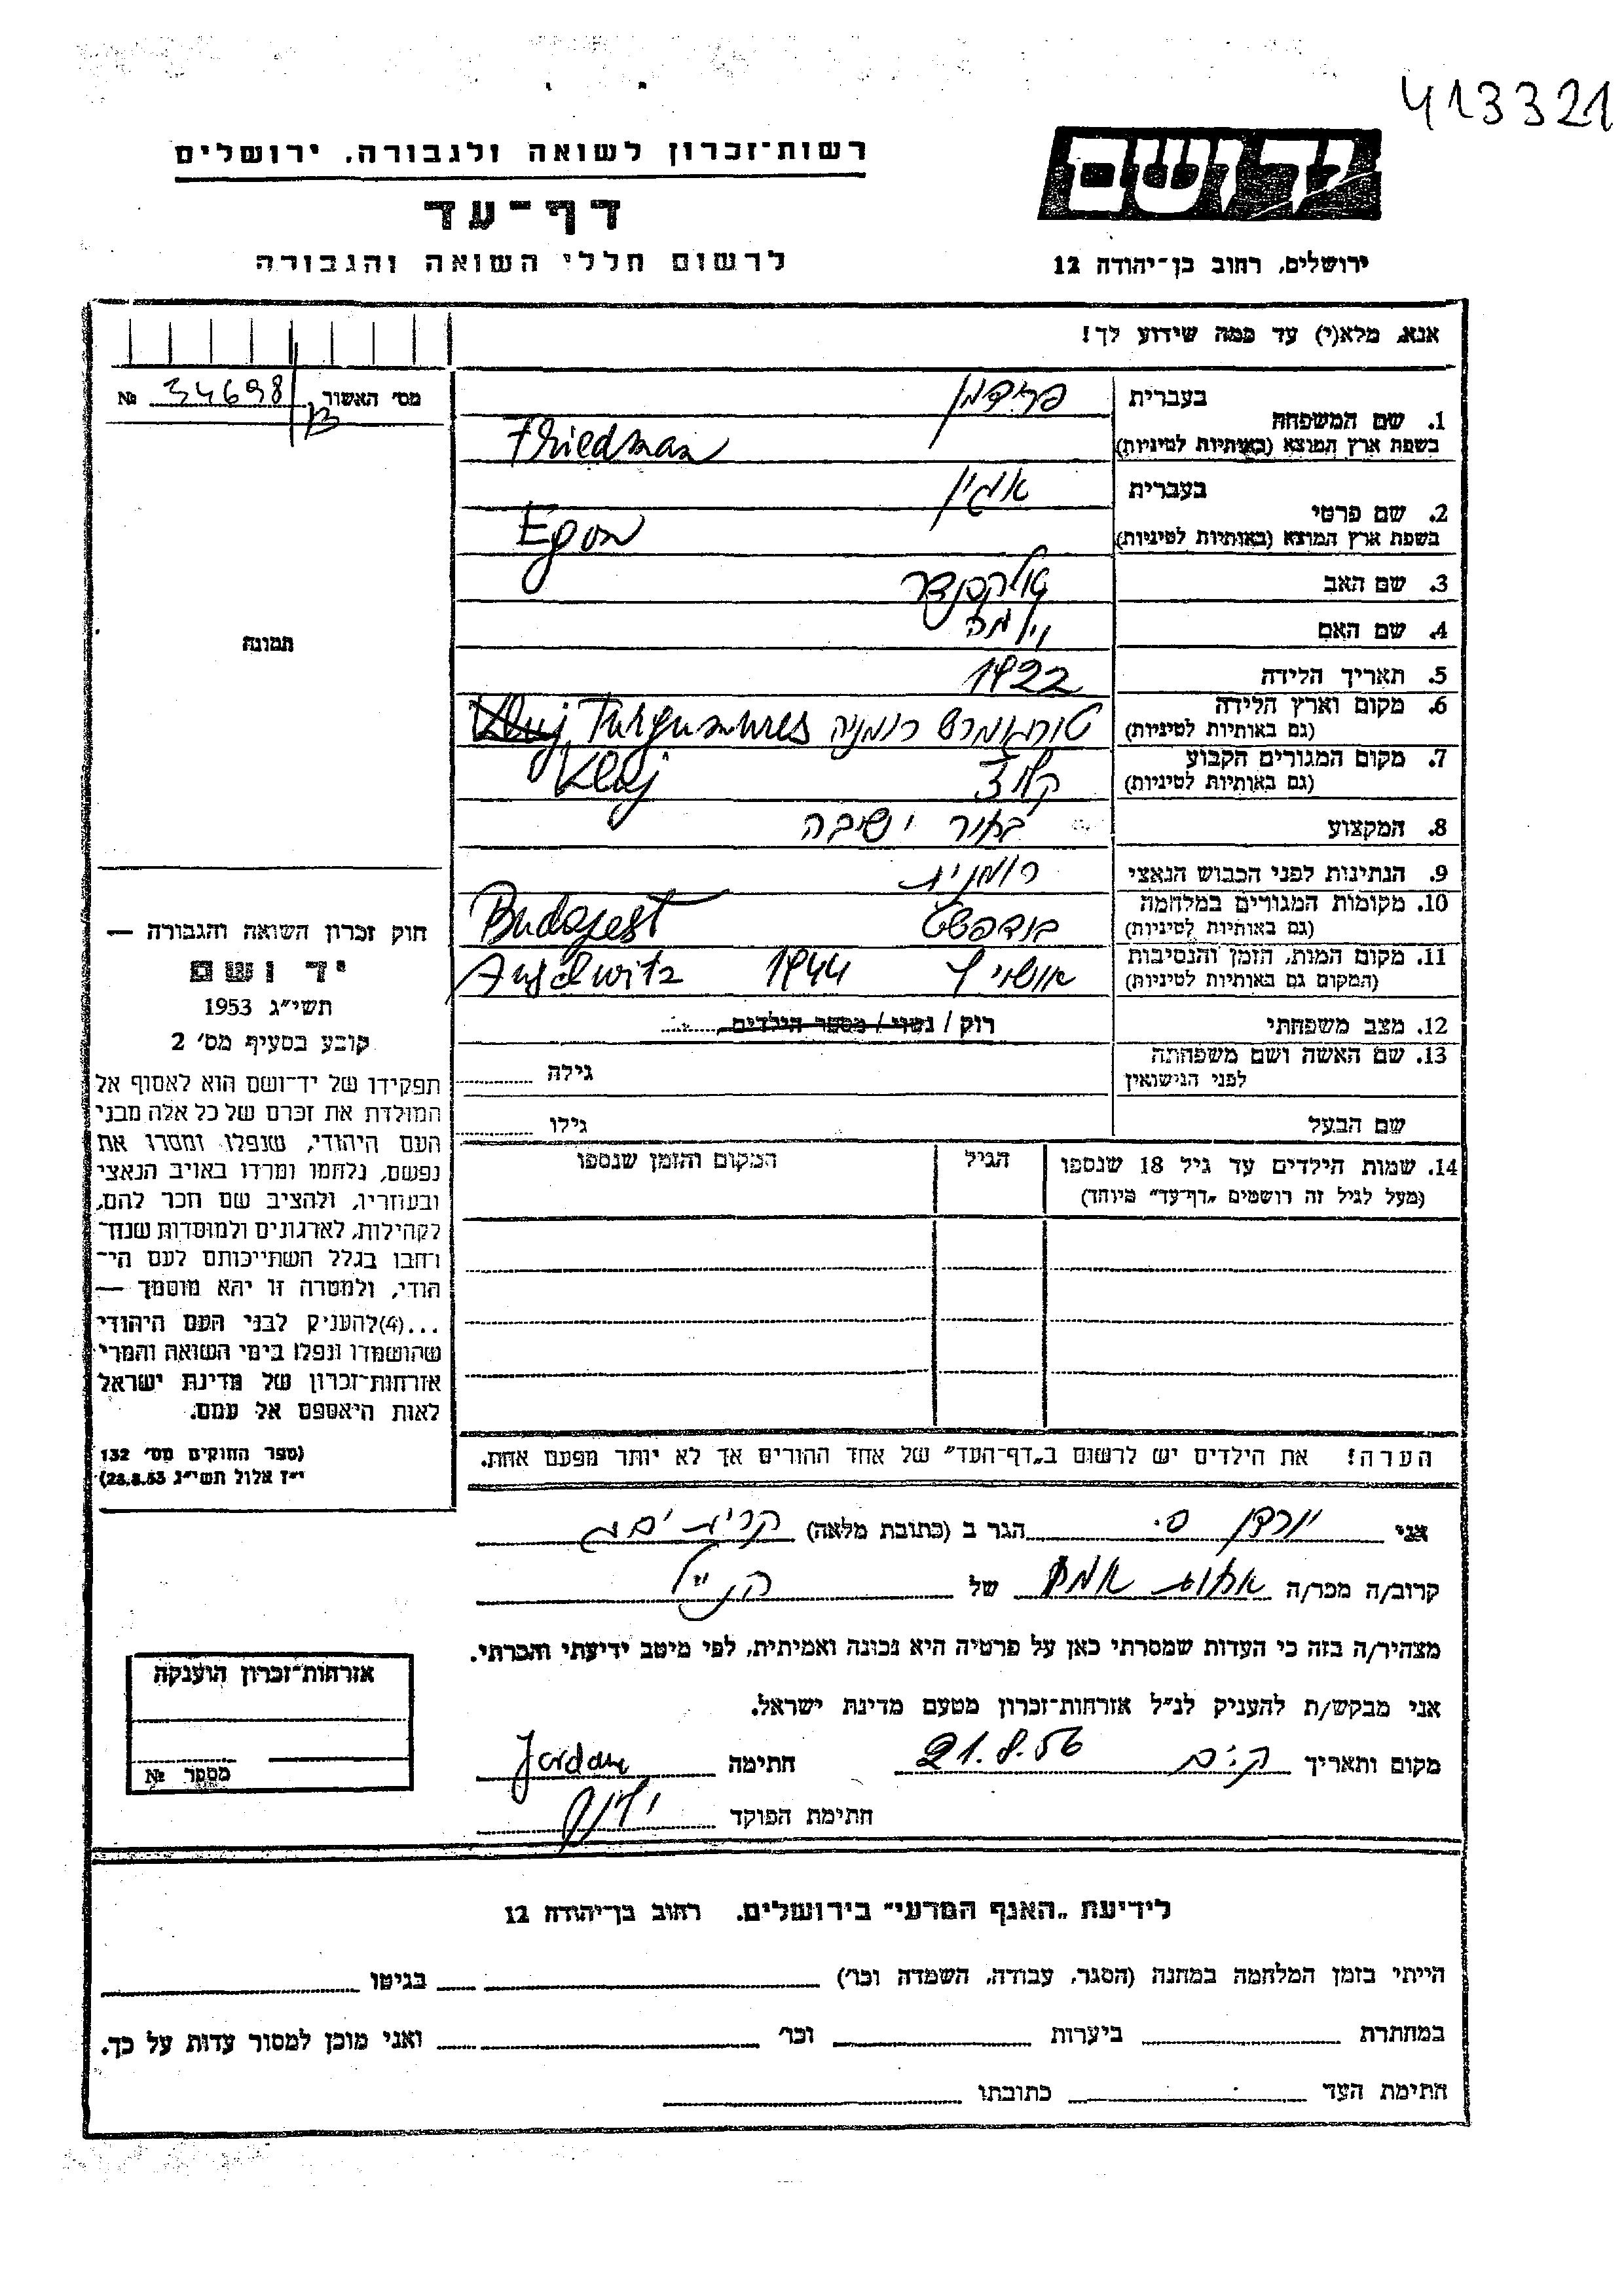 413321
יד ושם
ירושלים, רחוב בן־יהודה 12
רשות־זכרון לשואה ולגבורה, ירושלים
דף־עד
לרשום חללי השואה והגבורה
אנא, מלא(י) עד כמה שידוע לך!
מס׳ האשור 34698 №
1. שם המשפחה
בעברית פרידמן
בשפת ארץ המוצא (באותיות לטיניות) Friedman
2. שם פרטי
בעברית אגון
בשפת ארץ המוצא (באותיות לטיניות) Egon
3. שם האב אלקסנדר
4. שם האם וילמה
5. תאריך הלידה 1922
6. מקום וארץ הלידה טורגומרש רומניה Kluj Turgumures
(גם באותיות לטיניות)
7. מקום המגורים הקבוע קלוז׳ Kluj
(גם באותיות לטיניות)
8. המקצוע בחור ישיבה
9. הנתינות לפני הכבוש הנאצי רומנית
10. מקומות המגורים במלחמה בודפשט Budapest
(גם באותיות לטיניות)
11. מקום המות, הזמן והנסיבות אושויץ 1944 Auschwitz
(המקום גם באותיות לטיניות)
12. מצב משפחתי רוק / נשוי / מספר הילדים
13. שם האשה ושם משפחתה
לפני הנישואין
גילה
שם הבעל
גילו
14. שמות הילדים עד גיל 18 שנספו
(מעל לגיל זה רושמים „דף־עד״ מיוחד)
הגיל
המקום והזמן שנספו
הערה! את הילדים יש לרשום ב„דף־העד״ של אחד ההורים אך לא יותר מפעם אחת.
תמונה
חוק זכרון השואה והגבורה —
יד ושם
תשי״ג 1953
קובע בסעיף מס׳ 2
תפקידו של יד־ושם הוא לאסוף אל
המולדת את זכרם של כל אלה מבני
העם היהודי, שנפלו ומסרו את
נפשם, נלחמו ומרדו באויב הנאצי
ובעוזריו, ולהציב שם וזכר להם,
לקהילות, לארגונים ולמוסדות שנח־
רחבו בגלל השתייכותם לעם הי־
הודי, ולמטרה זו יהא מוסמך —
...(4)להעניק לבני העם היהודי
שהושמדו ונפלו בימי השואה והמרי
אזרחות־זכרון של מדינת ישראל
לאות היאספם אל עמם.
(ספר החוקים מס׳ 132
י״ז אלול תשי״ג 28.8.53)
אני יורדן ס. הגר ב (כתובת מלאה) קרית ים ג
קרוב/ה מכר/ה של הנ״ל
מצהיר/ה בזה כי העדות שמסרתי כאן על פרטיה היא נכונה ואמיתית, לפי מיטב ידיעתי והכרתי.
אני מבקש/ת להעניק לנ״ל אזרחות־זכרון מטעם מדינת ישראל.
מקום ותאריך ק. ים 21.8.56 חתימה Jordan
חתימת הפוקד
אזרחות־זכרון הוענקה
מספר №
לידיעת „האגף המדעי״ בירושלים. רחוב בן־יהודה 12
הייתי בזמן המלחמה במחנה (הסגר, עבודה, השמדה וכו׳) בגיטו
במחתרת ביערות וכו׳ ואני מוכן למסור עדות על כך.
חתימת העד כתובתו